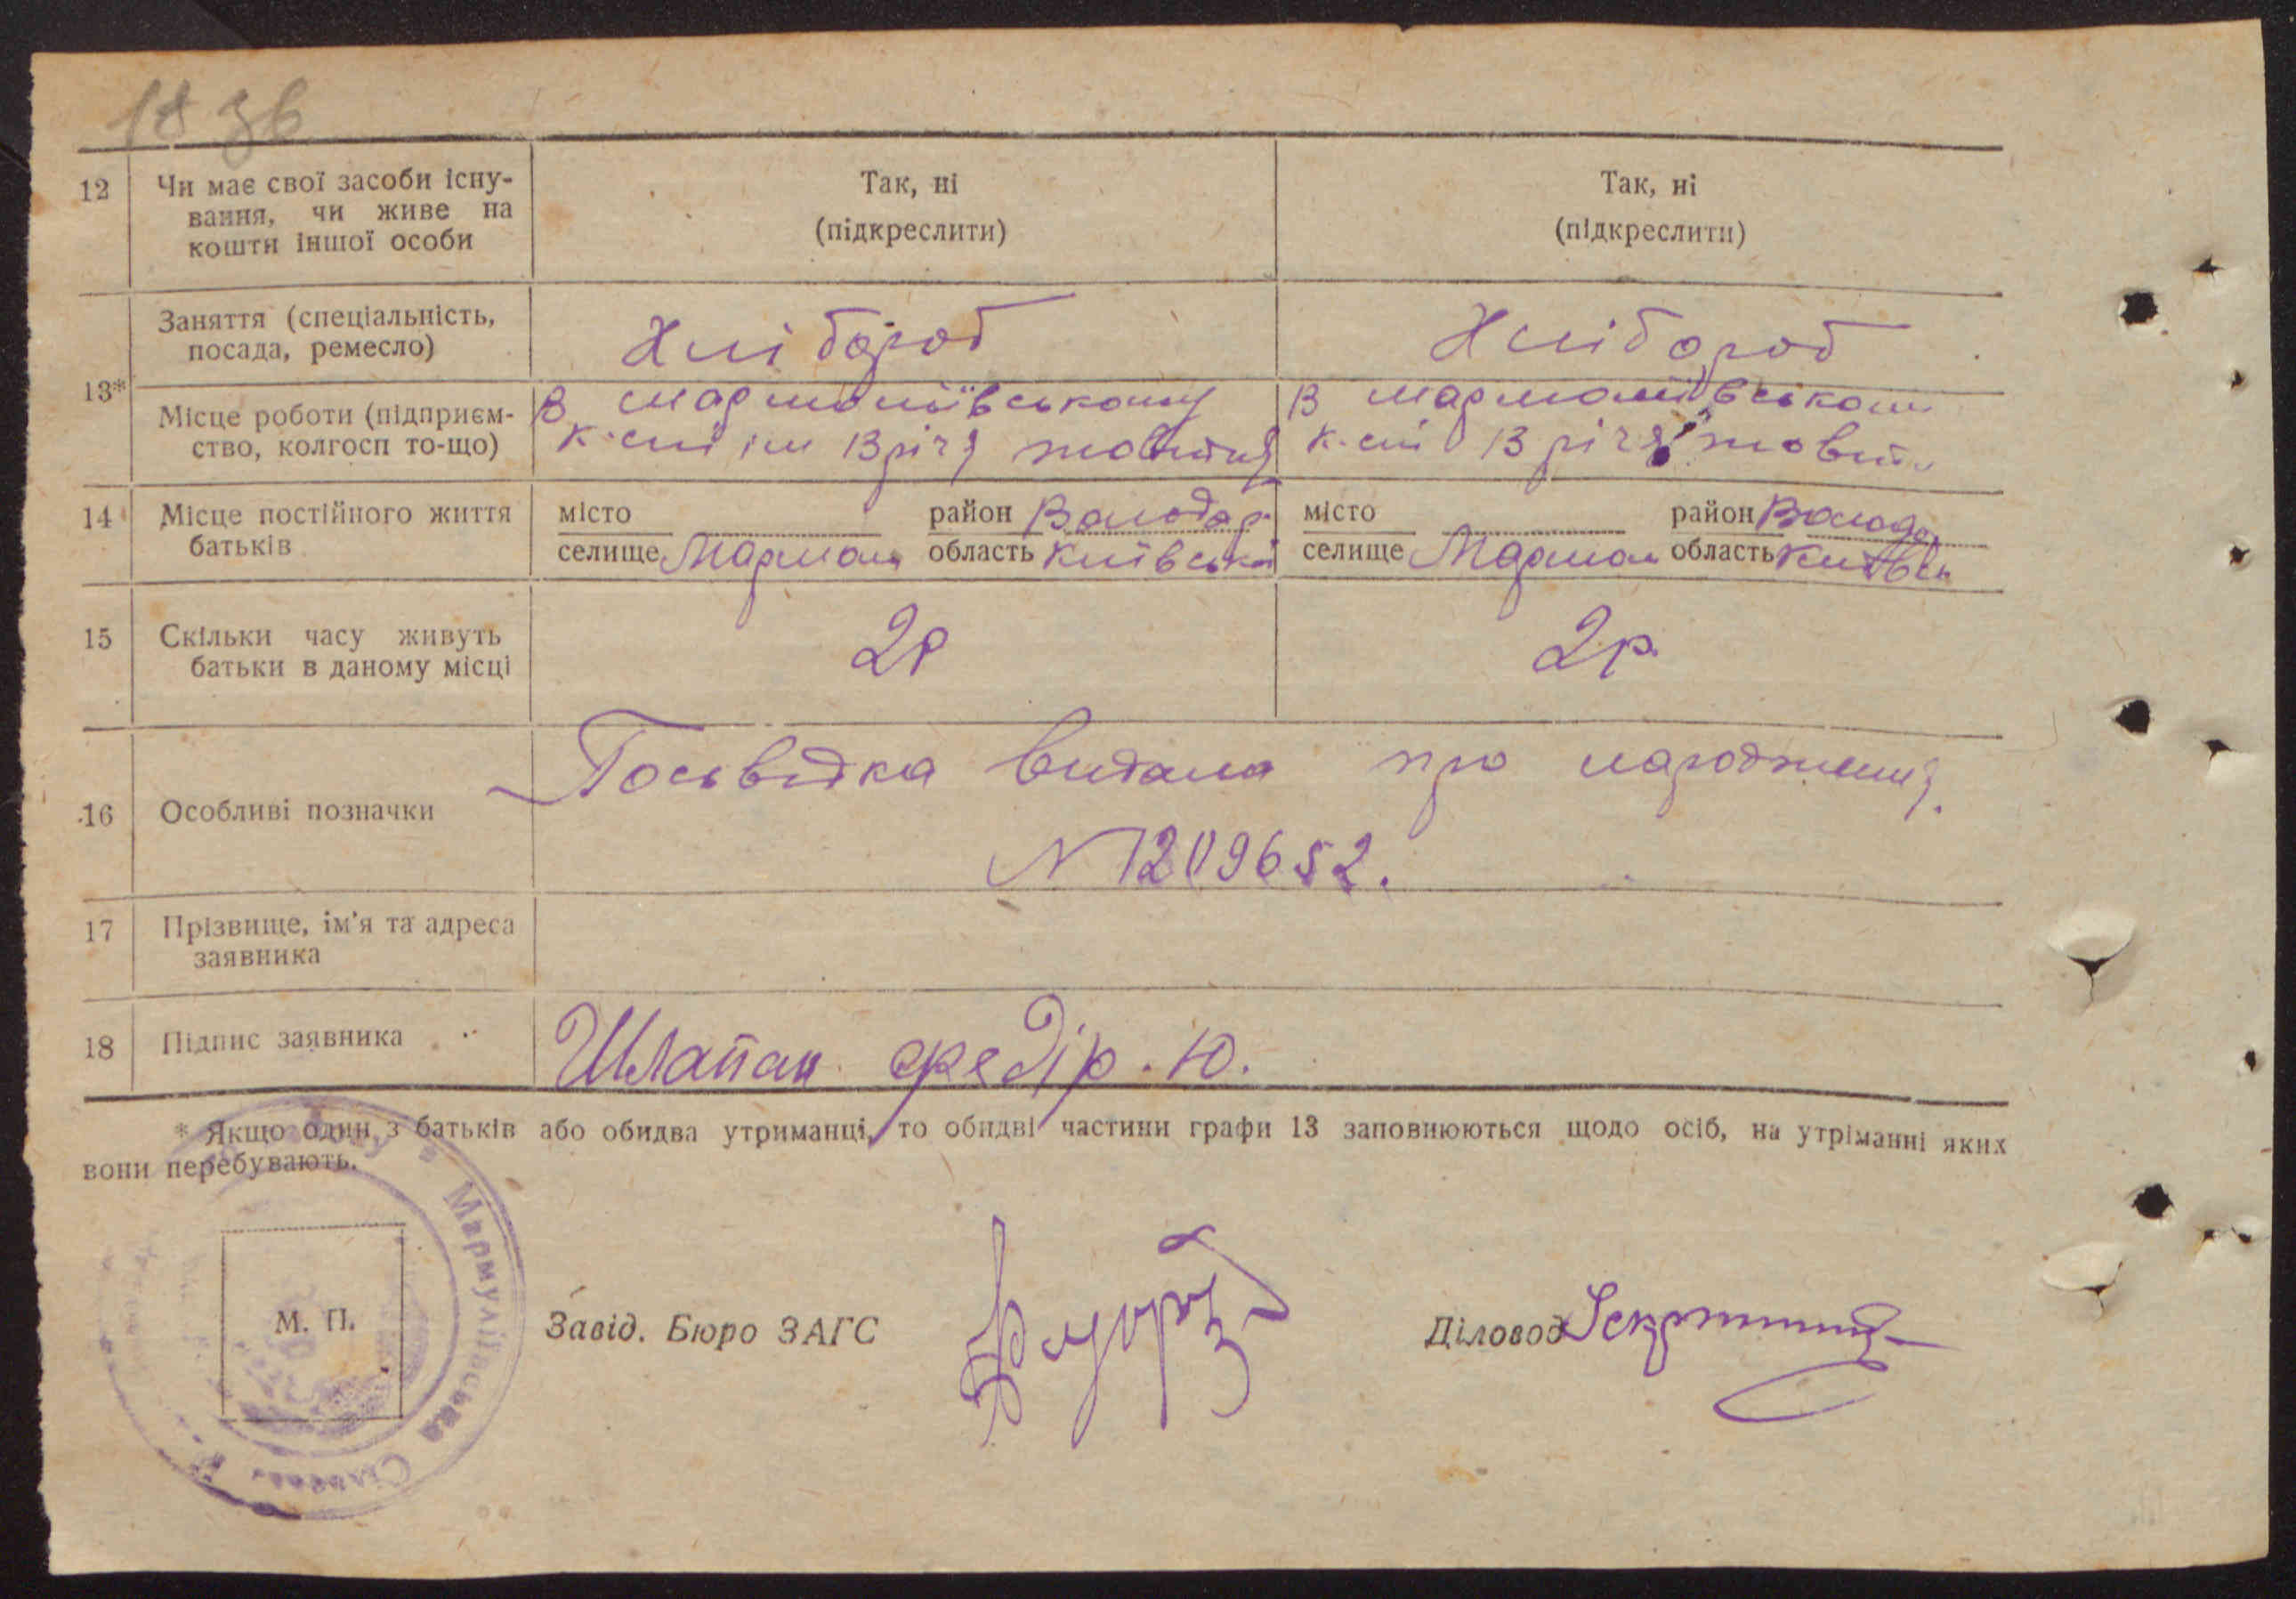 18 зв
12 Чи має свої засоби існу-
вання, чи живе на
кошти іншої особи
Так, ні
(підкреслити)
Так, ні
(підкреслити)
13*
Заняття (спеціальність,
посада, ремесло)
Хлібороб
Хлібороб
Місце роботи (підприєм-
ство, колгосп то-що)
В
13 річя
В
13 річя
14 Місце постійного життя
батьків
місто район Володар.
селище область Київської
місто район Володар
селище область Київсь
15 Скільки часу живуть
батьки в даному місці
2р
2р.
16 Особливі позначки
Посьвідка видана про народження.
N 1209652.
17 Прізвище, ім'я та адреса
заявника
18 Підпис заявника
Шлапак Федір. Ю.
* Якщо один з батьків або обидва утриманці, то обидві частини графи 13 заповнюються щодо осіб, на утріманні яких
вони перебувають.
Мармуліївська Сільська
М. П.
Завід. Бюро ЗАГС
Діловод